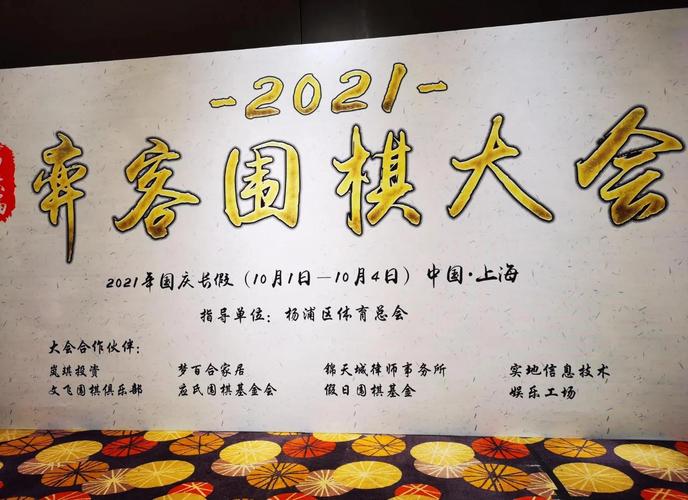 -2021-
弈客围棋大会
2021年国庆长假（10月1日—10月4日）中国·上海
指导单位：杨浦区体育总会
大会合作伙伴：
岚琪投资 梦百合家居 锦天城律师事务所 实地信息技术
文飞围棋俱乐部 应氏围棋基金会 假日围棋基金 娱乐工场